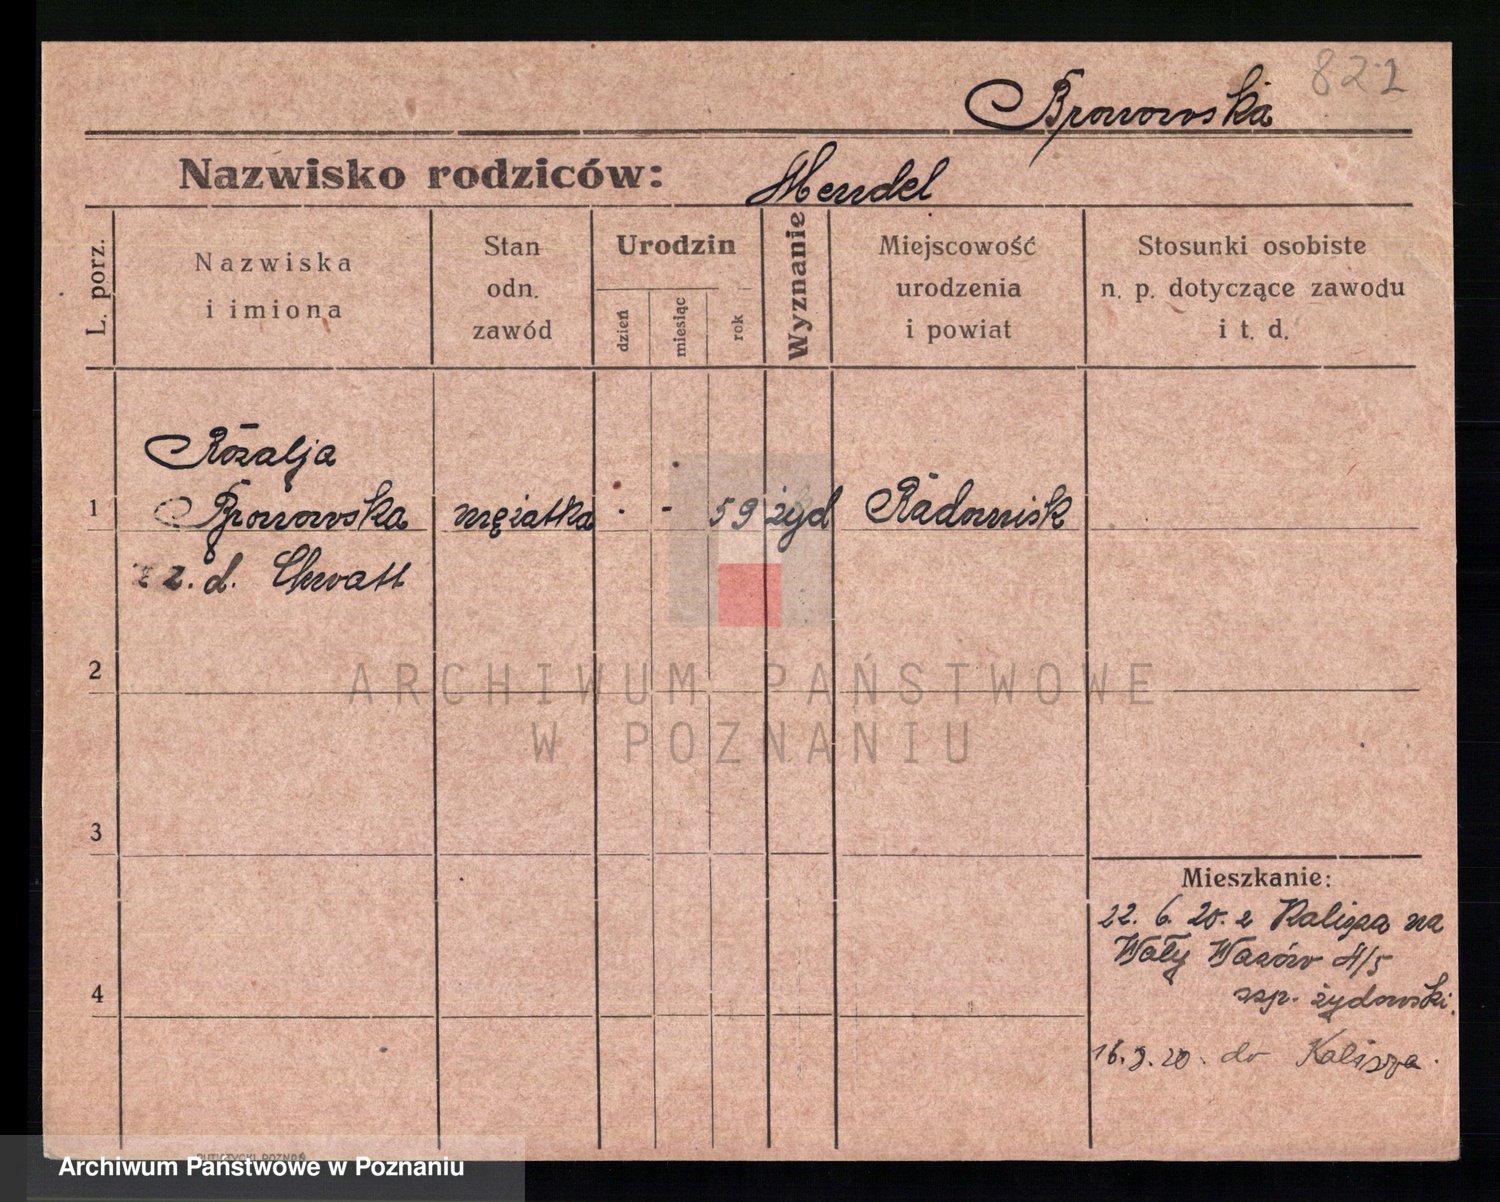 Bronowska 821
Nazwisko rodziców: Mendel
L. porz.
Nazwiska
i imiona
Stan
odn.
zawód
Urodzin
dzień
miesiąc
rok
Wyznanie
Miejscowość
urodzenia
i powiat
Stosunki osobiste
n. p. dotyczące zawodu
i t. d.
Rozalja
1 Bronowska mężatka · - 59 żyd Radomsk
z d. Chwatt
2
3
4
Mieszkanie:
22. 6. 20. z Kalisza na
Wały Wazów 4/5
szp. żydowski.
16.9.20. do Kalisza.
ARCHIWUM PAŃSTWOWE
W POZNANIU
Archiwum Państwowe w Poznaniu